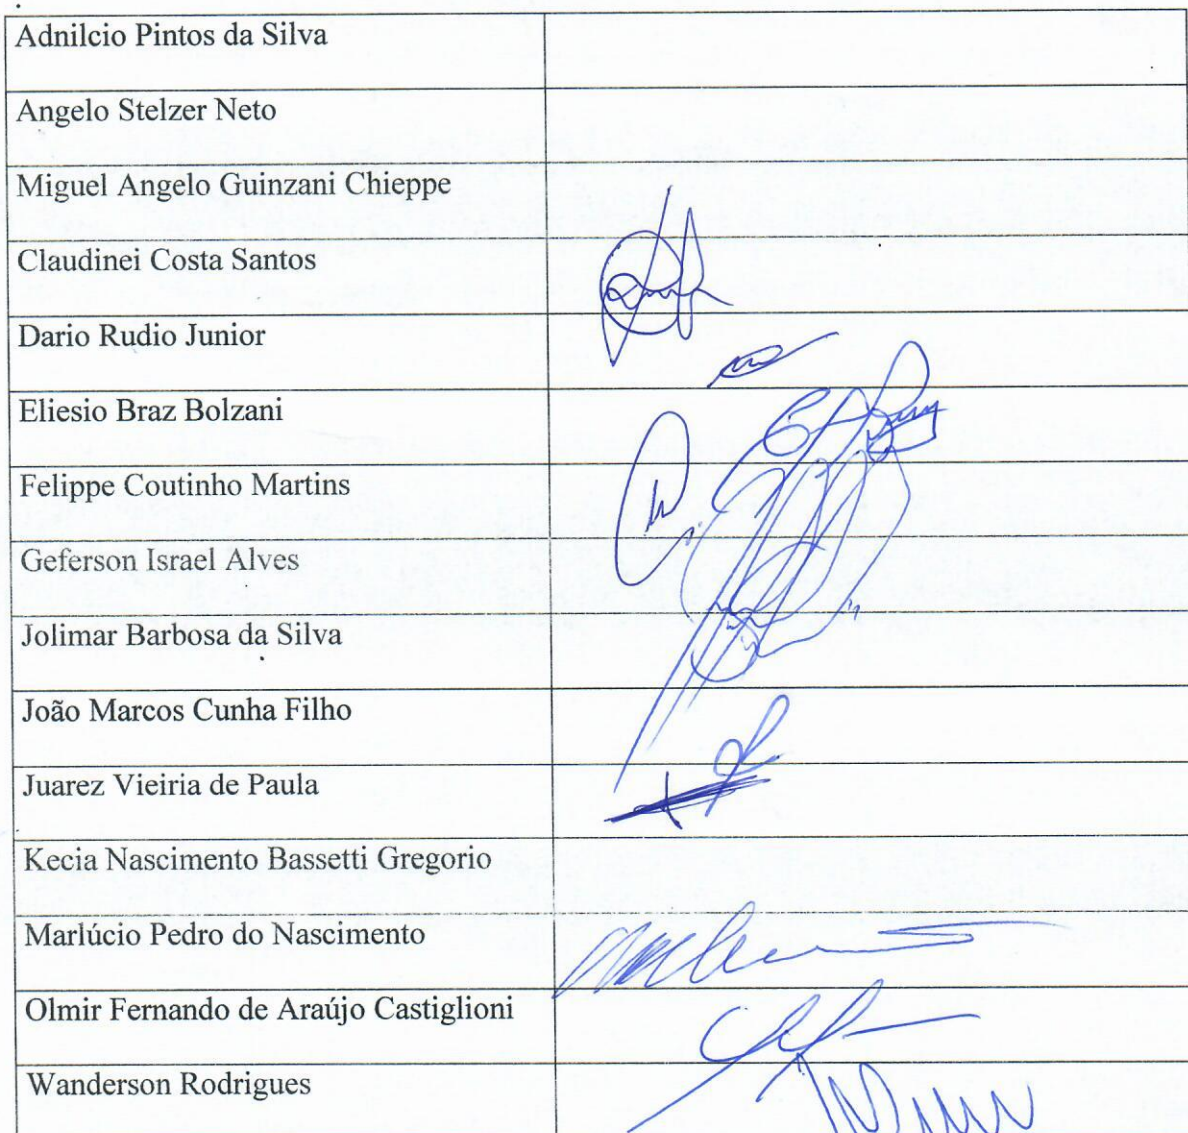 Adnilcio Pintos da Silva
Angelo Stelzer Neto
Miguel Angelo Guinzani Chieppe
Claudinei Costa Santos
Dario Rudio Junior
Eliesio Braz Bolzani
Felippe Coutinho Martins
Geferson Israel Alves
Jolimar Barbosa da Silva
João Marcos Cunha Filho
Juarez Vieiria de Paula
Kecia Nascimento Bassetti Gregorio
Marlúcio Pedro do Nascimento
Olmir Fernando de Araújo Castiglioni
Wanderson Rodrigues